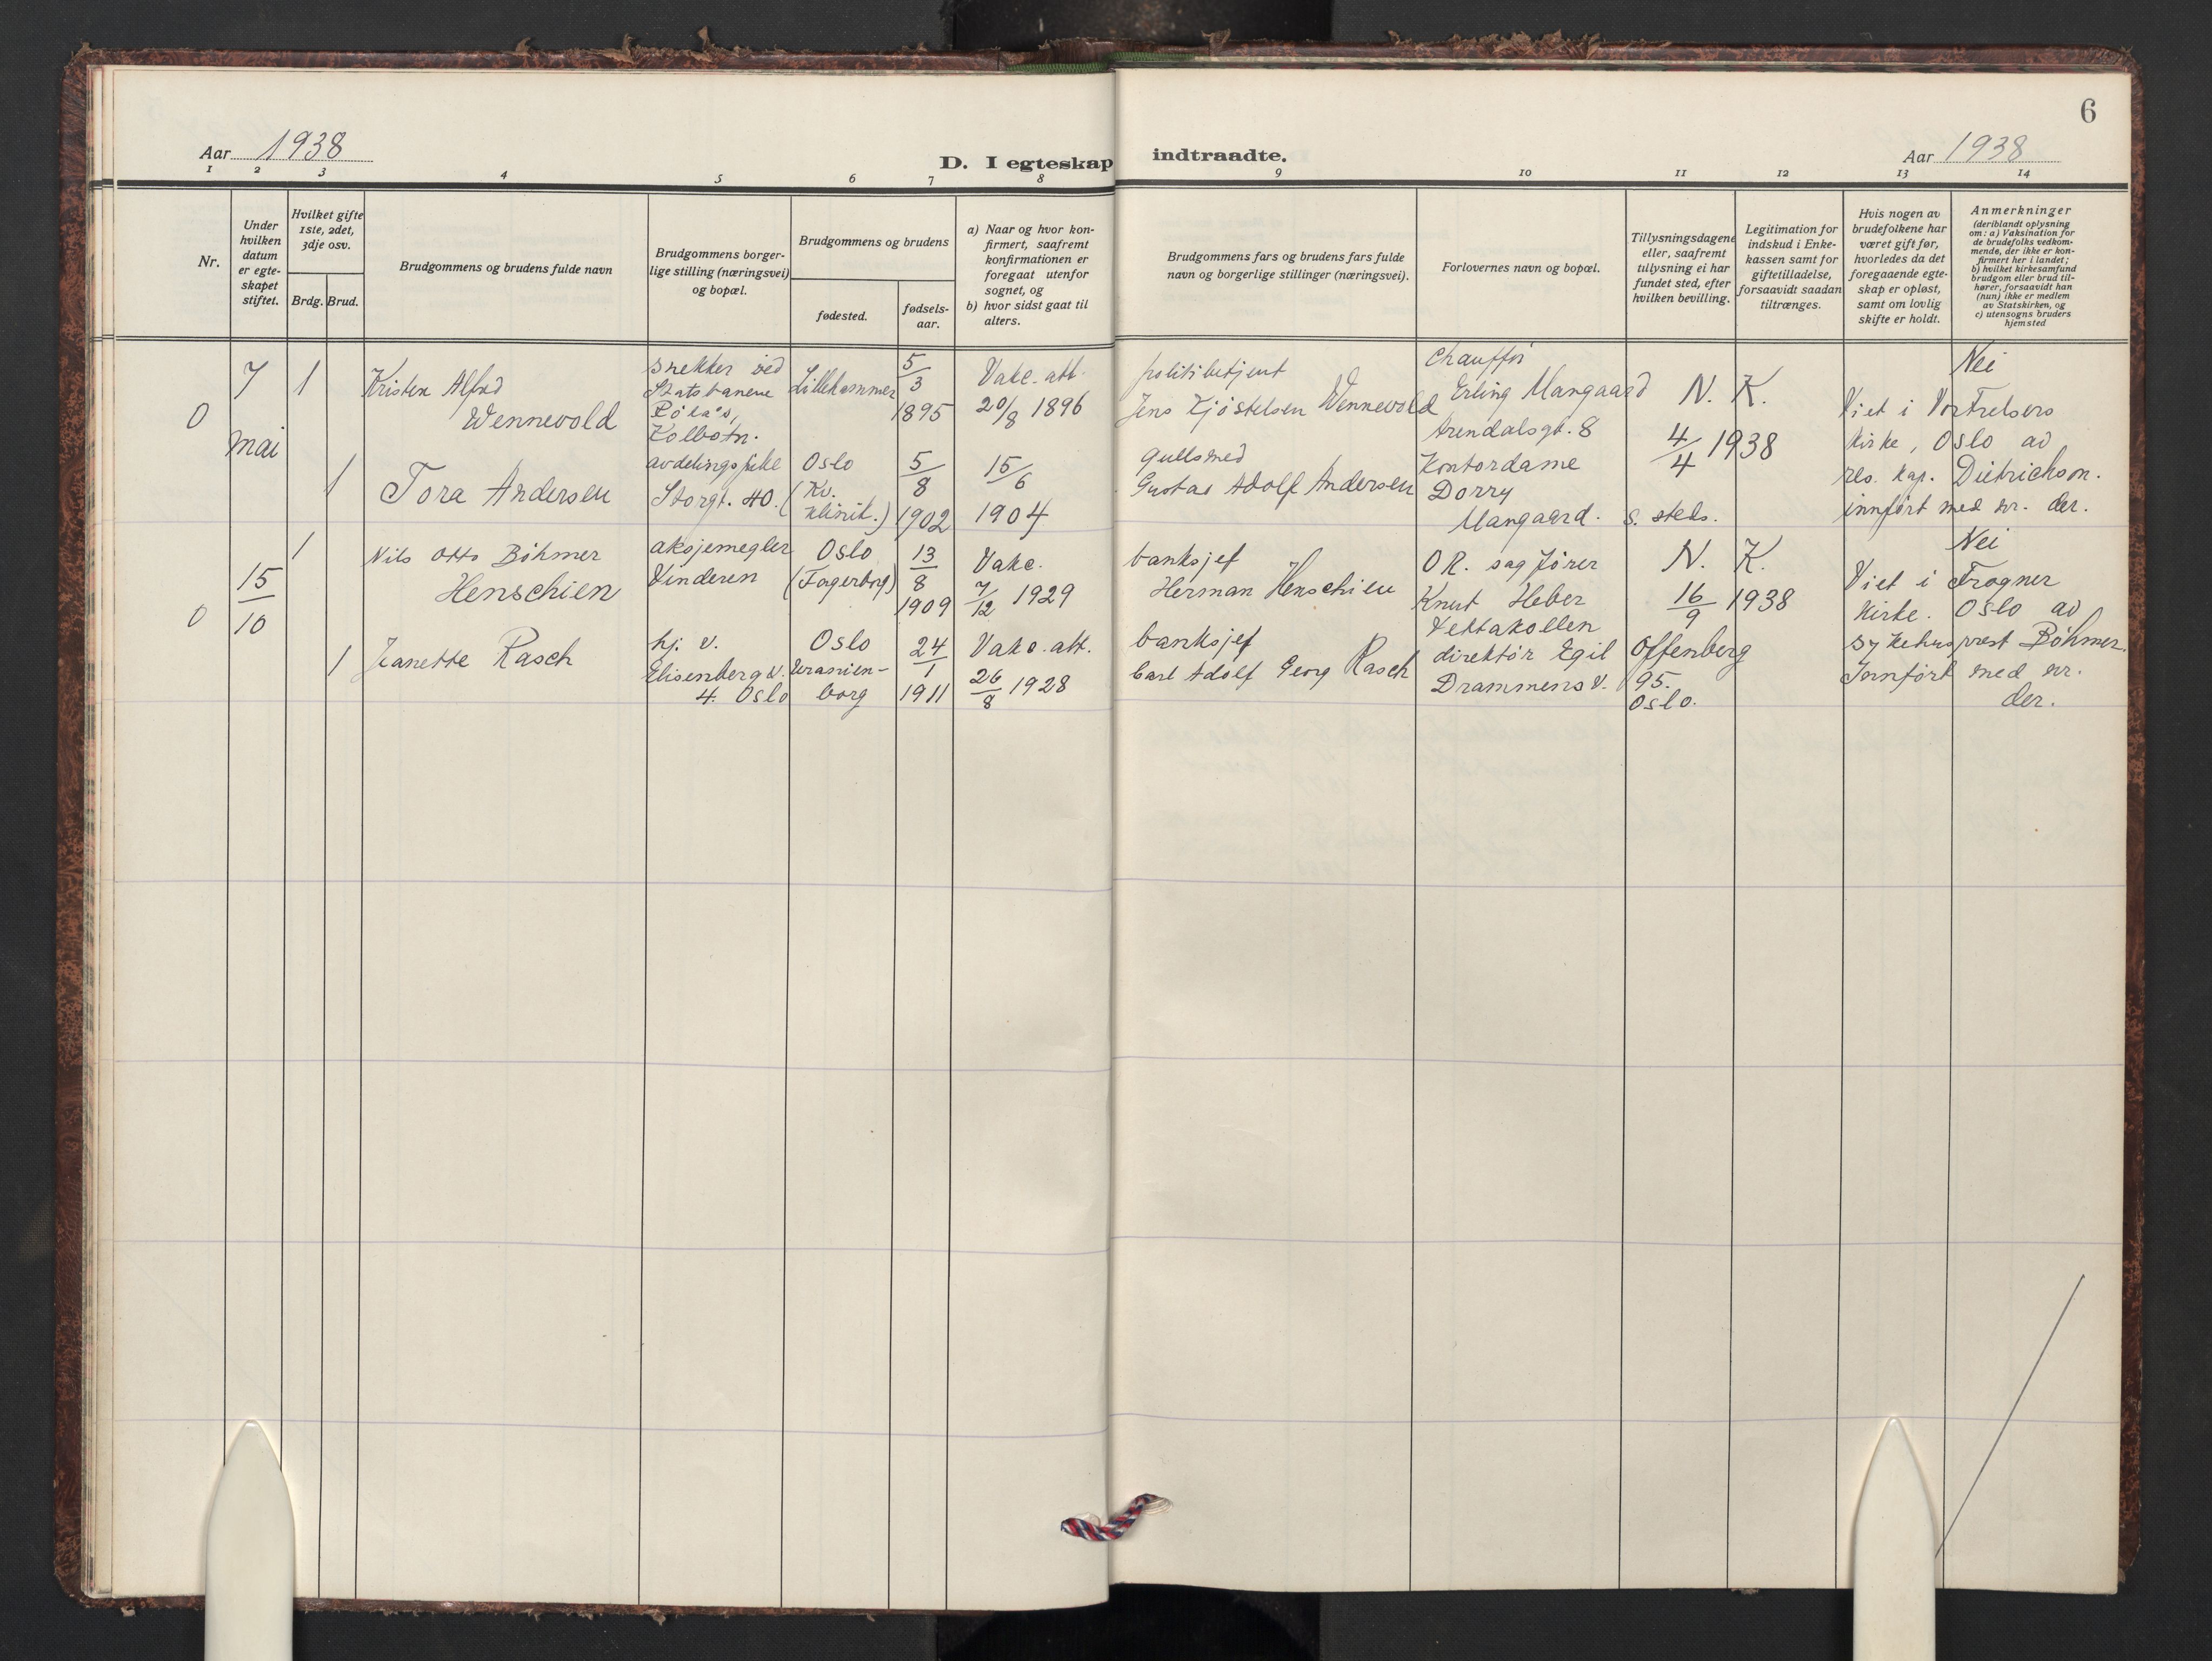 6
Aar 1938
D. I egteskap indtraadte.
Aar 1938
1 2 3 4 5 6 7 8 9 10 11 12 13 14
Nr.
Under
hvilken
datum
er egte-
skapet
stiftet.
Hvilket gifte
1ste, 2det,
3dje osv.
Brdg. Brud.
Brudgommens og brudens fulde navn
Brudgommens borger-
lige stilling (næringsvei)
og bopæl.
Brudgommens og brudens
fødested.
fødsels-
aar.
a) Naar og hvor kon-
firmert, saafremt
konfirmationen er
foregaat utenfor
sognet, og
b) hvor sidst gaat til
alters.
Brudgommens fars og brudens fars fulde
navn og borgerlige stillinger (næringsvei).
Forlovernes navn og bopæl.
Tillysningsdagene
eller, saafremt
tillysning ei har
fundet sted, efter
hvilken bevilling.
Legitimation for
indskud i Enke-
kassen samt for
giftetilladelse,
forsaavidt saadan
tiltrænges.
Hvis nogen av
brudefolkene har
været gift før,
hvorledes da det
foregaaende egte-
skap er opløst,
samt om lovlig
skifte er holdt.
Anmerkninger
(deriblandt oplysning
om: a) Vaksination for
de brudefolks vedkom-
mende, der ikke er kon-
firmert her i landet;
b) hvilket kirkesamfund
brudgom eller brud til-
hører, forsaavidt han
(hun) ikke er medlem
av Statskirken, og
c) utensogns bruders
hjemsted
0
7
mai
1
Kristen Alfred
Wennevold
snekker ved
Statsbanene
Kolbotn.
Lillehammer
5/3
1895
Vakc. att.
20/8 1896
politibetjent
Jens Kjøstelsen Wennevold
Chauffør
Erling Mangaard
Arendalsgt. 8
N. K.
4/4 1938
Nei
Viet i Vor Frelsers
Kirke, Oslo av
res. kap. Dietrichson.
innført med nr. der.
1
Tora Andersen
avdelingsfrøke
Storgt. 40.
Oslo
(Kv.
klinik.)
5/8
1902
15/6
1904
gullsmed
Gustav Adolf Andersen
Kontordame
Dorry
Mangaard. s. steds.
0
15/10
1
Nils Otto Böhmer
Henschien
aksjemegler
Vinderen
Oslo
(Fagerborg)
13/8
1909
Vakc.
7/12 1929
banksjef
Herman Henschien
O R. sagfører
Knut Heber
Vettakollen
N. K.
16/9 1938
Nei
Viet i Frogner
Kirke. Oslo av
sykehusprest Böhmer.
Innført med nr.
der.
1
Jeanette Rasch
hj. v.
Elisenberg v.
4. Oslo
Oslo
Uranien-
borg
24/1
1911
Vakc. att.
26/8 1928
banksjef
Carl Adolf Georg Rasch
direktør Egil Offenberg
Drammens v. 95.
Oslo.